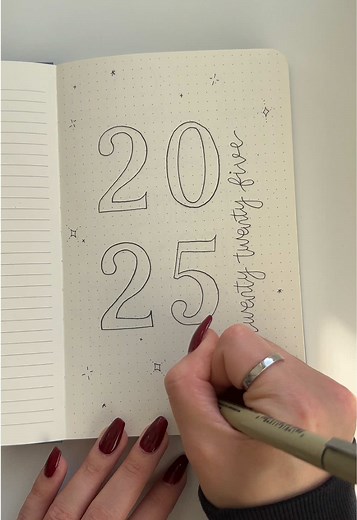 20
25
twenty twenty five